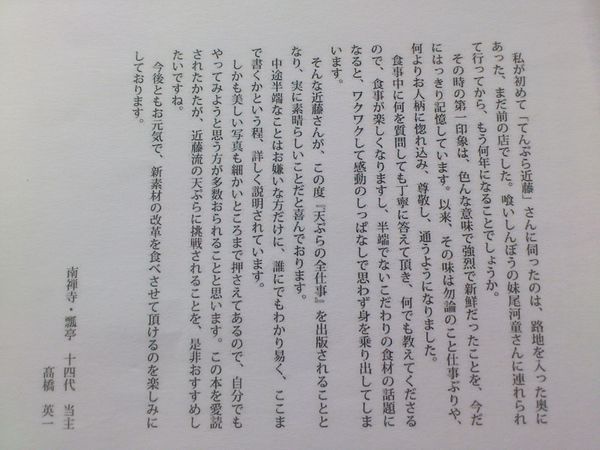 私が初めて「てんぷら近藤」さんに伺ったのは、路地を入った奥に
あった、まだ前の店でした。喰いしんぼうの妹尾河童さんに連れられ
て行ってから、もう何年になることでしょうか。
その時の第一印象は、色んな意味で強烈で新鮮だったことを、今だ
にはっきり記憶しています。以来、その味は勿論のこと仕事ぶりや、
何よりお人柄に惚れ込み、尊敬し、通うようになりました。
食事中に何を質問しても丁寧に答えて頂き、何でも教えてくださる
ので、食事が楽しくなりますし、半端でないこだわりの食材の話題に
なると、ワクワクして感動のしっぱなしで思わず身を乗り出してしま
います。
そんな近藤さんが、この度『天ぷらの全仕事』を出版されることと
なり、実に素晴らしいことだと喜んでおります。
中途半端なことはお嫌いな方だけに、誰にでもわかり易く、ここま
で書くかという程、詳しく説明されています。
しかも美しい写真も細かいところまで押さえてあるので、自分でも
やってみようと思う方が多数おられることと思います。この本を愛読
されたかたが、近藤流の天ぷらに挑戦されることを、是非おすすめし
たいですね。
今後ともお元気で、新素材の改革を食べさせて頂けるのを楽しみに
しております。
南禅寺・瓢亭 十四代 当主
髙橋 英一